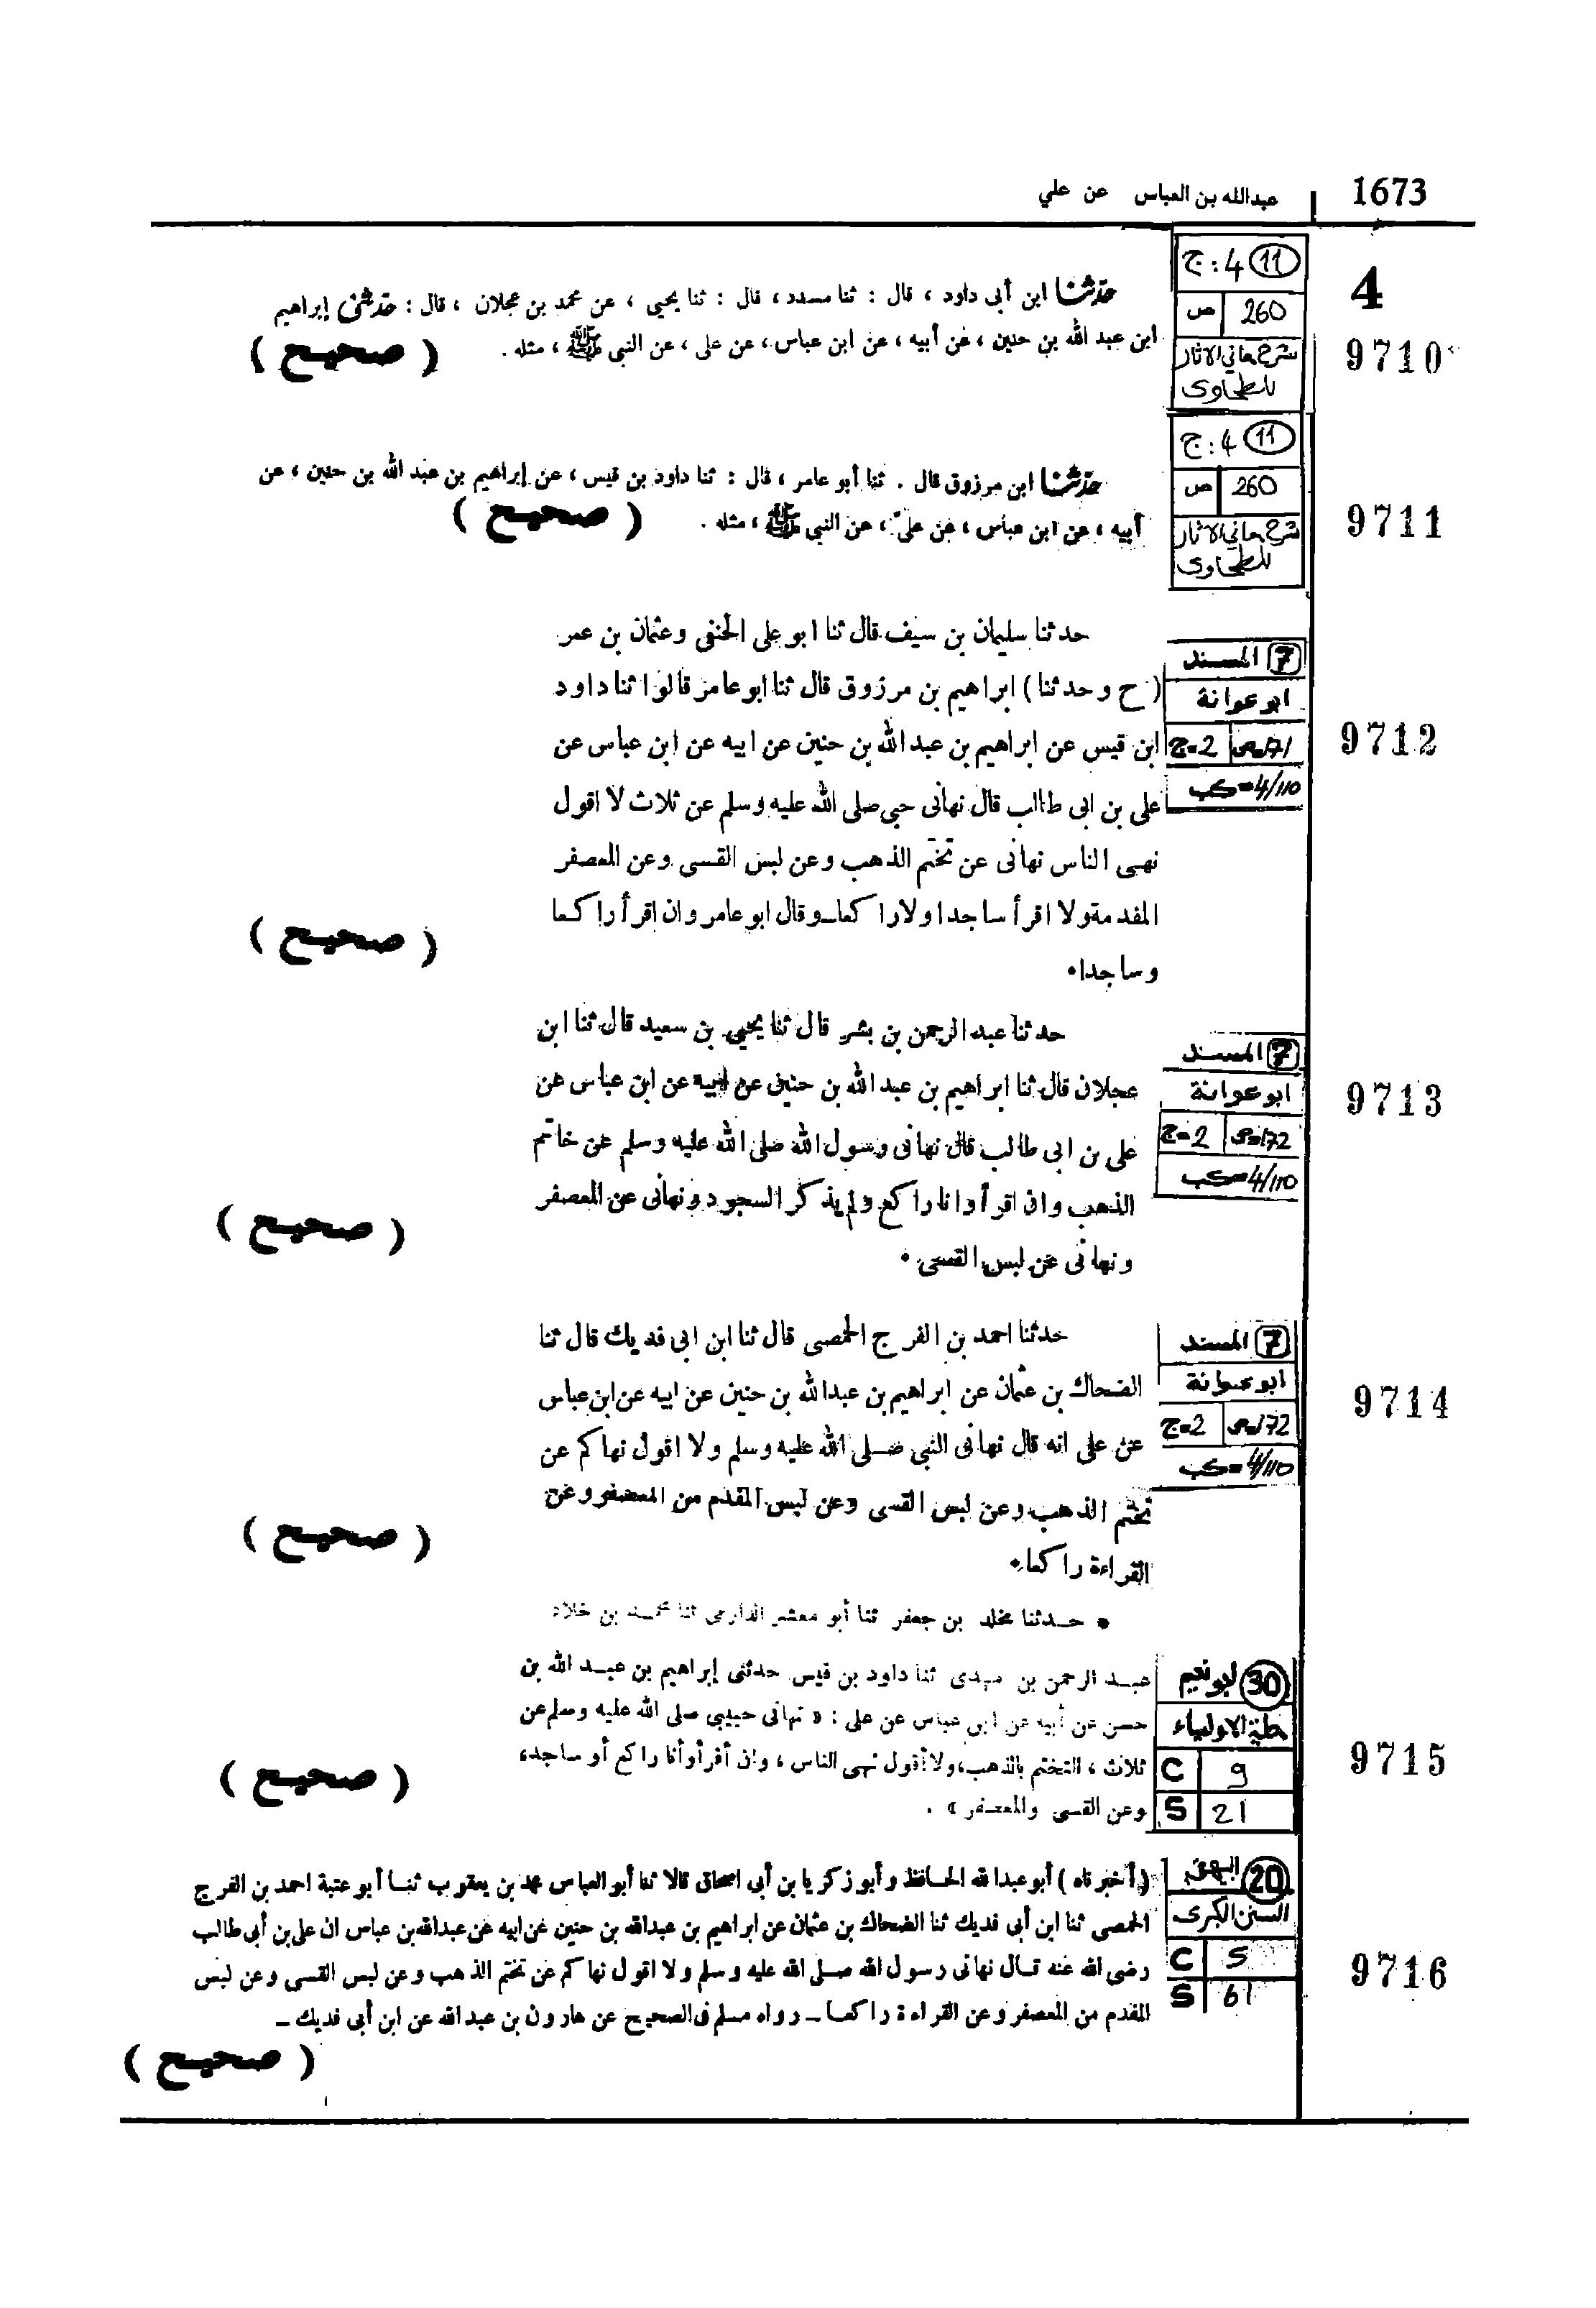 1673 عبدالله بن العباس عن علي
4
9710
11 ج : 4
260 ص
شرح معاني الاثار
للطحاوى
حدّثنا ابن أبى داود ، قال : ثنا مسدد ، قال : ثنا يحيى ، عن محمد بن عجلان ، قال : حدثنى إبراهيم
ابن عبد الله بن حنين ، عن أبيه ، عن ابن عباس ، عن على ، عن النبي ﷺ ، مثله .
( صحيح )
9711
11 ج : 4
260 ص
شرح معاني الاثار
للطحاوى
حدّثنا ابن مرزوق قال . ثنا أبو عامر ، قال : ثنا داود بن قيس ، عن إبراهيم بن عبد الله بن حنين ، عن
أبيه ، عن ابن عباس ، عن علىّ ، عن النبي ﷺ ، مثله .
( صحيح )
9712
7 المسند
ابوعوانة
ص171 ج=2
4/110=كب
حدثنا سليمان بن سيف قال ثنا ابو على الحنفى وعثمان بن عمر
( ح وحدثنا ) ابراهيم بن مرزوق قال ثنا ابوعامر قالوا ثنا داود
ابن قيس عن ابراهيم بن عبد الله بن حنين عن ابيه عن ابن عباس عن
على بن ابى طالب قال نهانى حبى صلى الله عليه وسلم عن ثلاث لا اقول
نهى الناس نهانى عن تختم الذهب وعن لبس القسى وعن المعصفر
المفدمة ولا اقرأ ساجدا ولا راكعا ـ وقال ابو عامر وان اقرأ راكعا
وساجدا •
( صحيح )
9713
7 المسند
ابوعوانة
ص=172 ج=2
4/110=كب
حدثنا عبد الرحمن بن بشر قال ثنا يحيى بن سعيد قال ثنا ابن
عجلان قال ثنا ابراهيم بن عبد الله بن حنين عن ابيه عن ابن عباس عن
على بن ابى طالب قال نهانى رسول الله صلى الله عليه وسلم عن خاتم
الذهب وان اقرأ وانا راكع ولم يذكر السجود ونهانى عن المعصفر
ونهانى عن لبس القسى •
( صحيح )
9714
7 المسند
ابوعوانة
ص=172 ج=2
4/110=كب
حدثنا احمد بن الفرج الحمصى قال ثنا ابن ابى فديك قال ثنا
الضحاك بن عثمان عن ابراهيم بن عبدالله بن حنين عن ابيه عن ابن عباس
عن على انه قال نهانى النبى صلى الله عليه وسلم ولا اقول نهاكم عن
تختم الذهب وعن لبس القسى وعن لبس المفدم من المعصفر وعن
القراءة راكعا •
( صحيح )
9715
30 ابونعيم
حلية الاولياء
C 9
S 21
• حدثنا مخلد بن جعفر ثنا أبو معشر الدارمى ثنا محمد بن خلاد
عبد الرحمن بن مهدى ثنا داود بن قيس حدثنى إبراهيم بن عبد الله بن
حسن عن أبيه عن ابن عباس عن على : « نهانى حبيبى صلى الله عليه وسلم عن
ثلاث ، التختم بالذهب ، ولا أقول نهى الناس ، وان أقرأ وأنا راكع أو ساجد ،
وعن القسى والمعصفر » .
( صحيح )
9716
20 البيهقى
السنن الكبرى
C 5
S 61
( أخبرناه ) أبو عبد الله الحافظ وأبو زكريا بن أبى اسحاق قالا ثنا أبو العباس محمد بن يعقوب ثنا أبو عتبة احمد بن الفرج
الحمصى ثنا ابن أبى فديك ثنا الضحاك بن عثمان عن ابراهيم بن عبدالله بن حنين عن ابيه عن عبدالله بن عباس ان على بن أبى طالب
رضى الله عنه قال نهانى رسول الله صلى الله عليه وسلم ولا اقول نهاكم عن تختم الذهب وعن لبس القسى وعن لبس
المفدم من المعصفر وعن القراءة راكعا ـ رواه مسلم فى الصحيح عن هارون بن عبد الله عن ابن أبى فديك ـ
( صحيح )